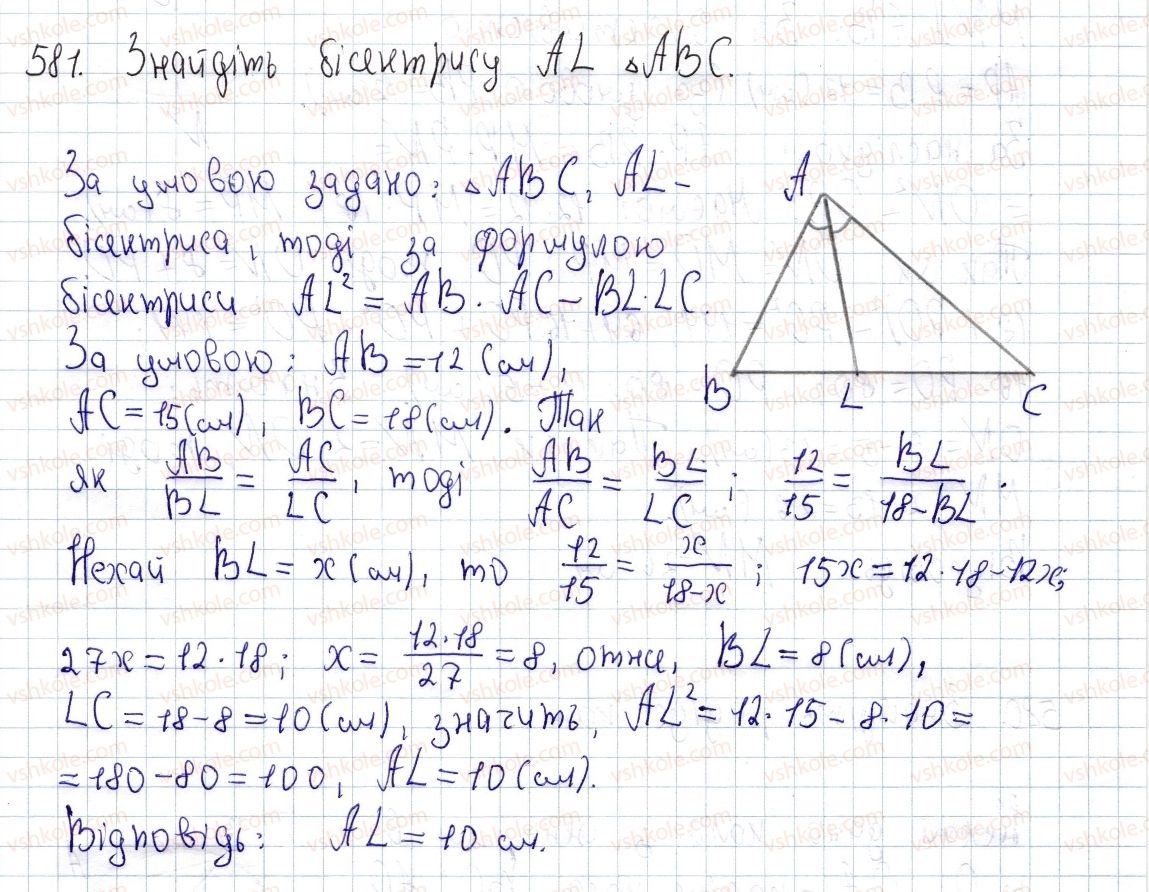 581. Знайдіть бісектрису AL △ABC.
За умовою задано: △ABC, AL –
бісектриса, тоді за формулою
бісектриси AL² = AB · AC – BL · LC.
За умовою: AB = 12 (см),
AC = 15 (см), BC = 18 (см). Так
як AB/BL = AC/LC, тоді AB/AC = BL/LC; 12/15 = BL/(18–BL).
Нехай BL = x (см), то 12/15 = x/(18–x); 15x = 12 · 18 – 12x;
27x = 12 · 18; x = (12 · 18)/27 = 8, отже, BL = 8 (см),
LC = 18 – 8 = 10 (см), значить, AL² = 12 · 15 – 8 · 10 =
= 180 – 80 = 100, AL = 10 (см).
Відповідь: AL = 10 см.
A
B L C
vshkole.com